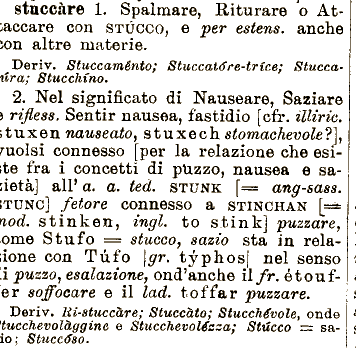 stuccàre 1. Spalmare, Riturare o At-
taccare con STÚCCO, e per estens. anche
con altre materie.
Deriv. Stuccaménto; Stuccatóre-tríce; Stucca-
túra; Stucchíno.
2. Nel significato di Nauseare, Saziare
e rifless. Sentir nausea, fastidio [cfr. illiric.
stuxen nauseato, stuxech stomachevole?],
vuolsi connesso [per la relazione che esi-
ste fra i concetti di puzzo, nausea e sa-
zietà] all' a. a. ted. STUNK [= ang-sass.
STUNC] fetore connesso a STINCHAN [=
mod. stinken, ingl. to stink] puzzare,
come Stufo = stucco, sazio sta in rela-
zione con Túfo [gr. tŷphos] nel senso
di puzzo, esalazione, ond'anche il fr. étouf-
fer soffocare e il lad. toffar puzzare.
Deriv. Ri-stuccàre; Stuccàto; Stucchévole, onde
Stucchevolàggine e Stucchevolézza; Stúcco = sa-
zio; Stuccóso.